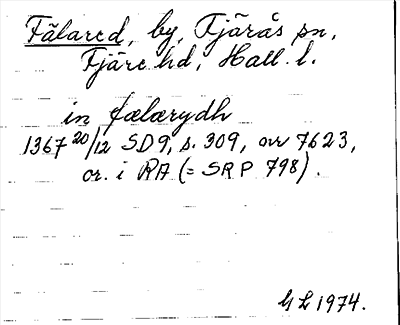 Fälared, by, Fjärås sn,
Fjäre hd, Hall. l.
in fælærydh
1367 20/12 SD9, s. 309, nr 7623,
or. i RA (= SRP 798).
GL 1974.